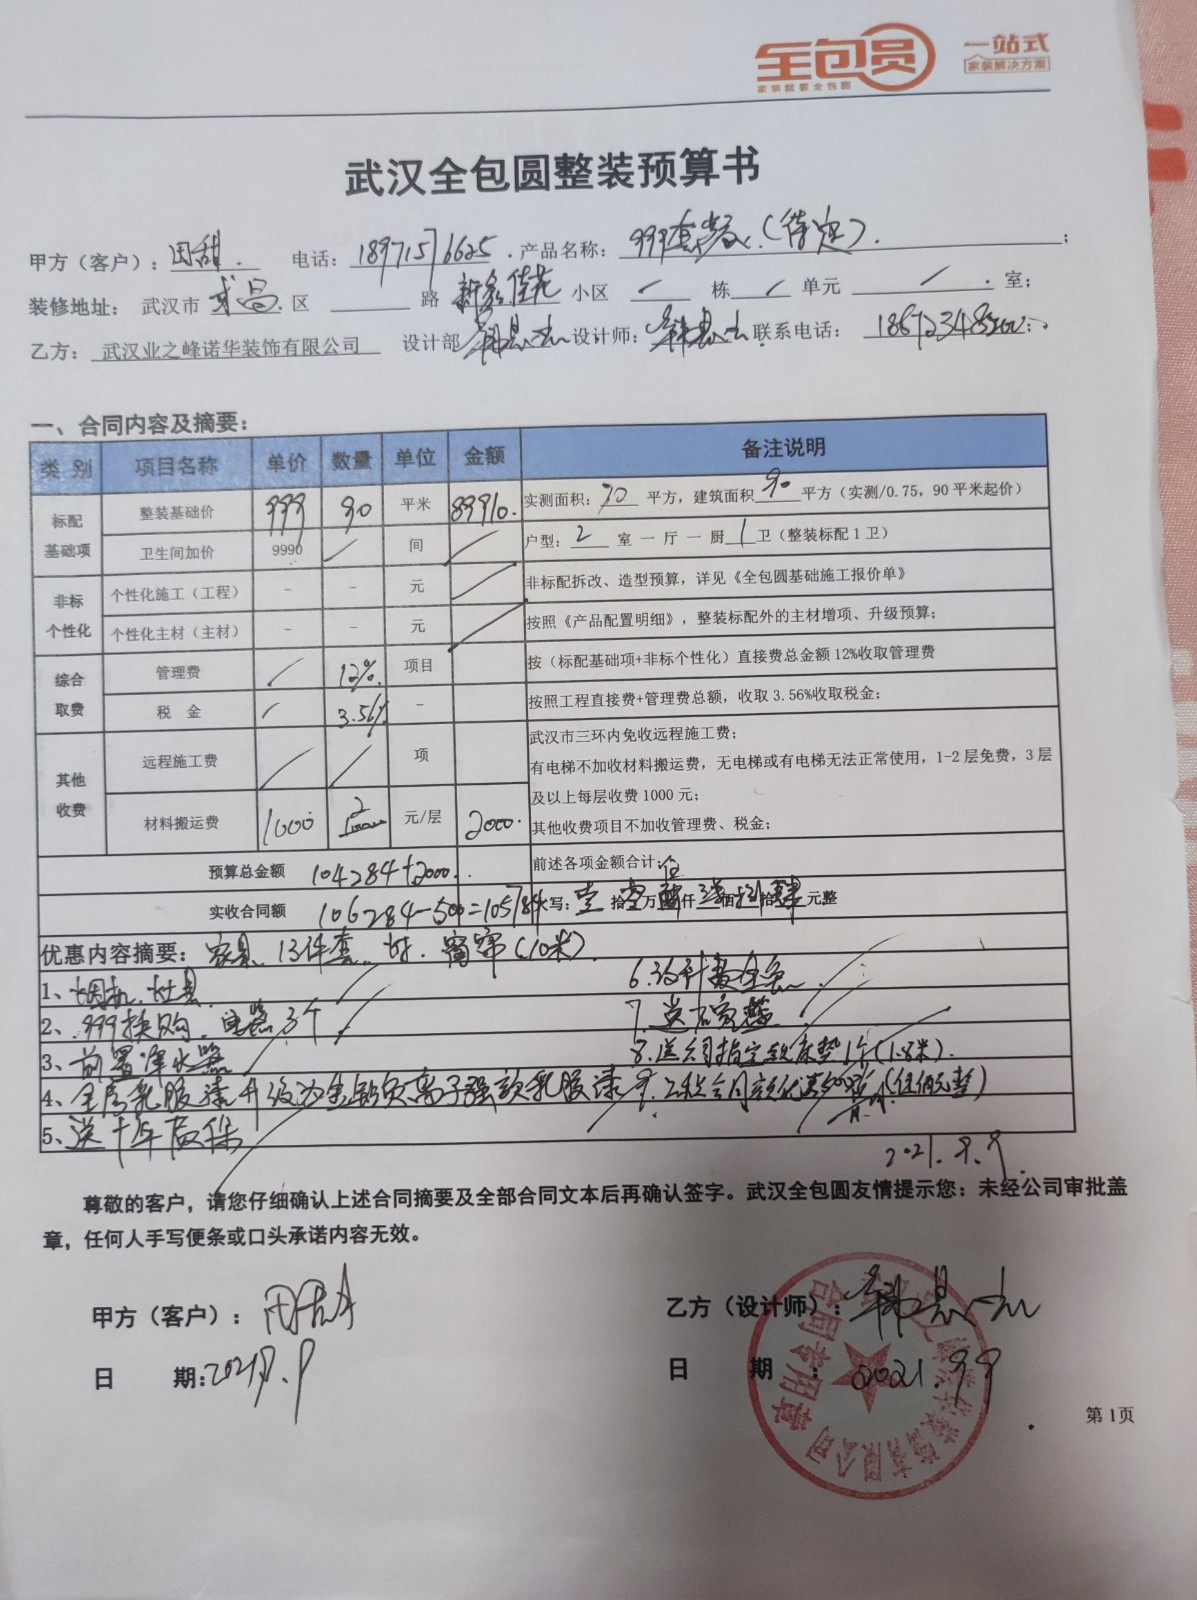 全包圆 一站式
家装就要全包圆 家装解决方案
武汉全包圆整装预算书
甲方（客户）：田甜. 电话：18971576625. 产品名称：999套餐.（待定）.；
装修地址： 武汉市 武昌 区 路 小区 / 栋 / 单元 / 室；
乙方：武汉业之峰诺华装饰有限公司 设计部 设计师： 联系电话：
一、合同内容及摘要：
类 别 项目名称 单价 数量 单位 金额 备注说明
标配基础项 整装基础价 999 90 平米 89910. 实测面积：70 平方，建筑面积 90 平方（实测/0.75，90平米起价）
卫生间加价 9990 / 间 / 户型：2 室 一 厅 一 厨 1 卫（整装标配1卫）
非标个性化 个性化施工（工程） - - 元 / 非标配拆改、造型预算，详见《全包圆基础施工报价单》
个性化主材（主材） - - 元 / 按照《产品配置明细》，整装标配外的主材增项、升级预算；
综合取费 管理费 / 12%. 项目 按（标配基础项+非标个性化）直接费总金额12%收取管理费
税 金 / 3.56% - 按照工程直接费+管理费总额，收取3.56%收取税金；
其他收费 远程施工费 / / 项 武汉市三环内免收远程施工费；
有电梯不加收材料搬运费，无电梯或有电梯无法正常使用，1-2层免费，3层
及以上每层收费1000元；
材料搬运费 1000 2 元/层 2000. 其他收费项目不加收管理费、税金；
预算总金额 104284+2000. 前述各项金额合计：
实收合同额 106284-500=105784 大写：壹 拾 零 万 伍 仟 柒 佰 捌 拾 肆 元整
优惠内容摘要： 家具13件套 窗帘（10米）.
1、烟机.灶具. 6.设计费全免
2、999换购.电器3个 7.
3、前置净水器 8.送公司指定软床垫1个（1.8米）.
4、全房乳胶漆升级为 负离子 乳胶漆 9. 合同额优惠500元（伍佰元整）
5、送十年质保
2021.9.9.
尊敬的客户，请您仔细确认上述合同摘要及全部合同文本后再确认签字。武汉全包圆友情提示您：未经公司审批盖
章，任何人手写便条或口头承诺内容无效。
甲方（客户）：田甜 乙方（设计师）：
日 期：2021.9.9 日 期：2021.9.9
合同专用章
第1页